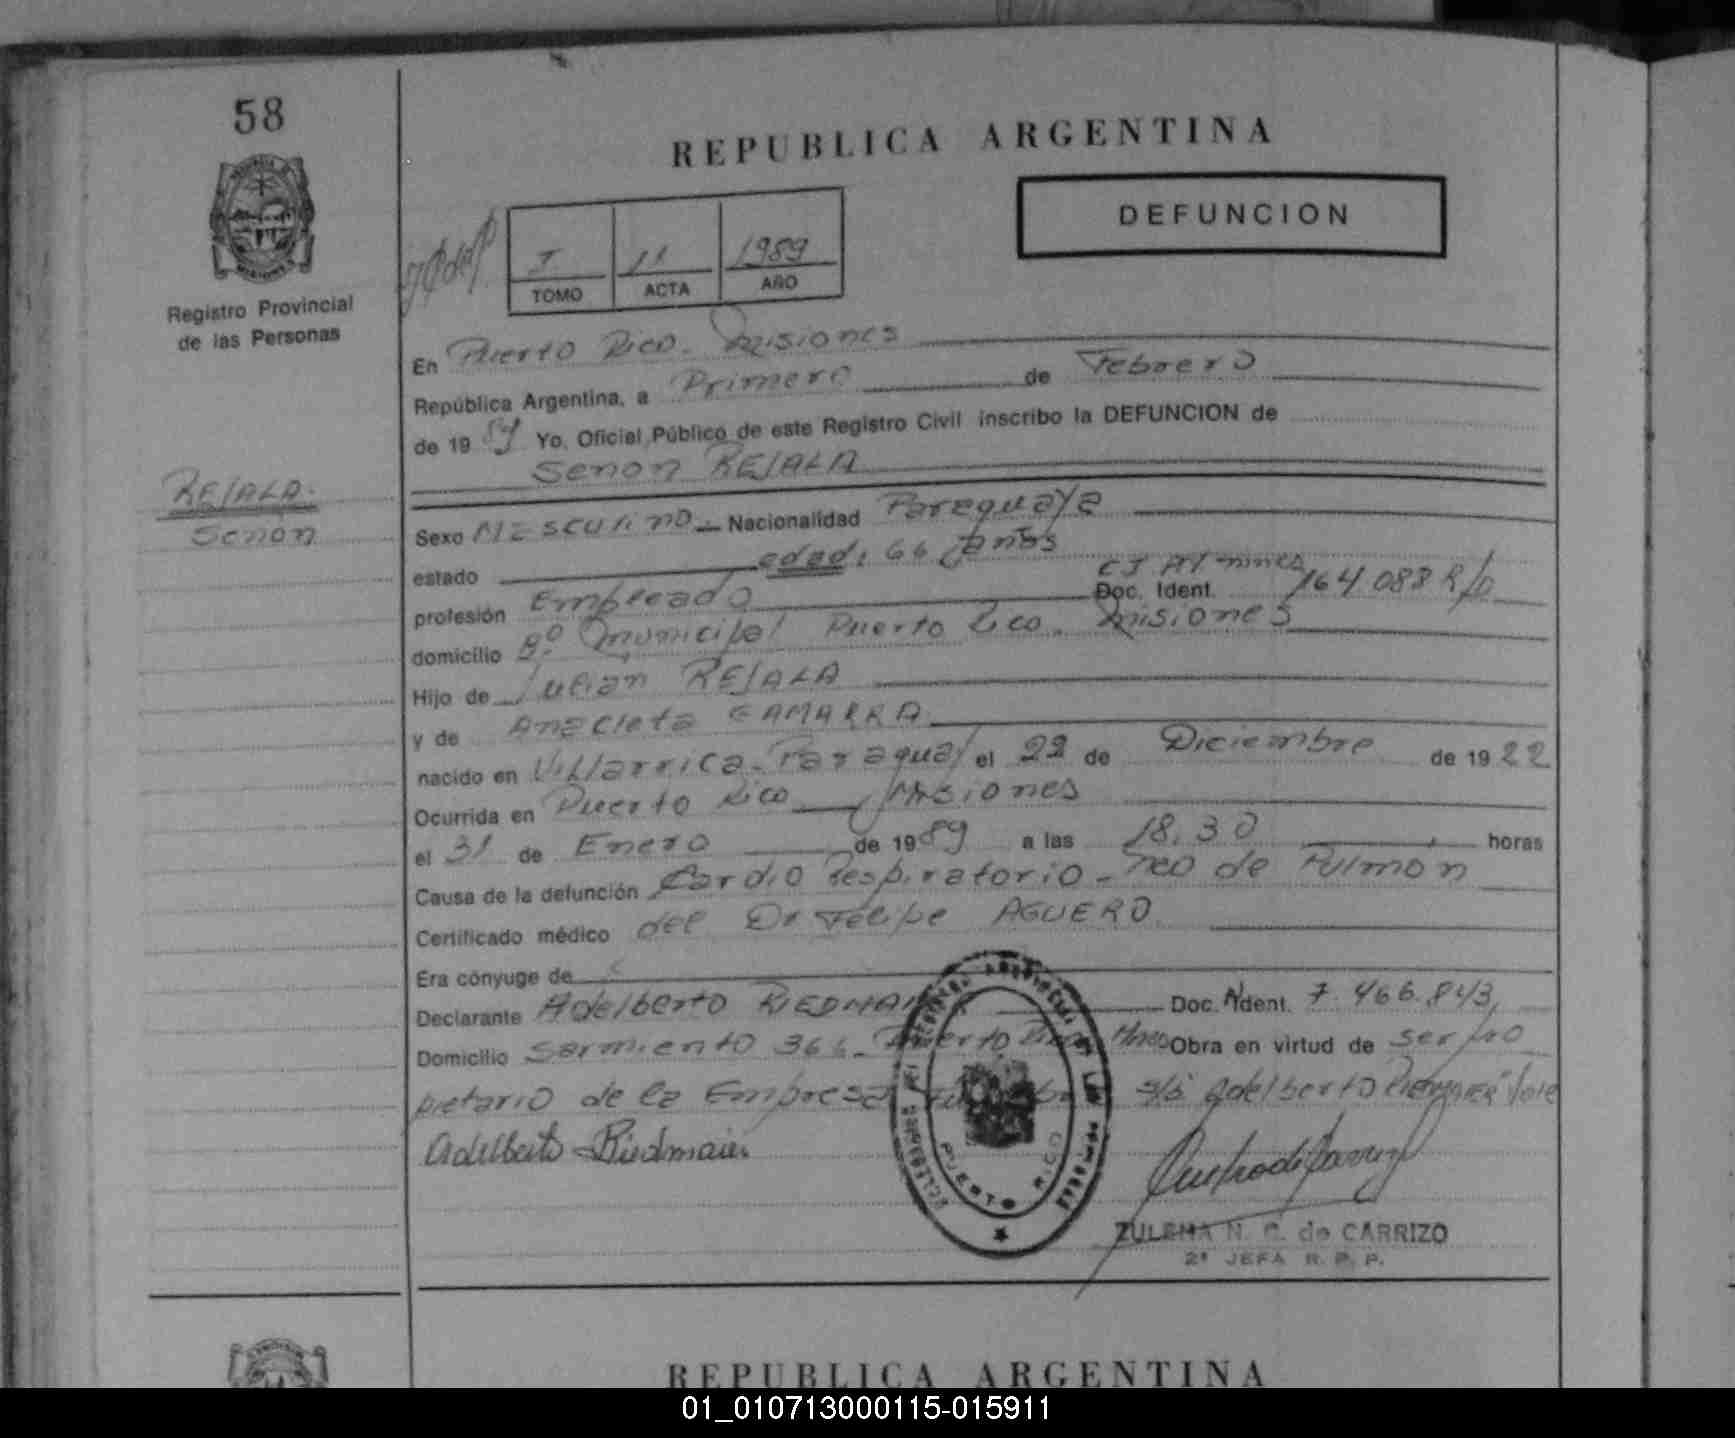 58
REPUBLICA ARGENTINA
DEFUNCION
I 11 1989
TOMO ACTA AÑO
Registro Provincial
de las Personas
En Puerto Rico. Misiones
República Argentina, a Primero de Febrero
de 1989 Yo, Oficial Público de este Registro Civil inscribo la DEFUNCION de
Senon REJALA
REJALA.
Senon
Sexo Masculino. Nacionalidad Paraguaya
estado edad: 66 años
profesión Empleado Doc. Ident. CI Pol. Mnes 164.088 R/D
domicilio Bº Municipal Puerto Rico. Misiones
Hijo de Julian REJALA
y de Anacleta GAMARRA
nacido en Villarrica-Paraguay el 22 de Diciembre de 1922
Ocurrida en Puerto Rico Misiones
el 31 de Enero de 1989 a las 18.30 horas
Causa de la defunción Cardio Respiratorio - neo de Pulmon
Certificado médico del Dr Felipe AGUERO
Era cónyuge de
Declarante Adelberto RIEDMAIER Doc. Ident. 7.466.843
Domicilio Sarmiento 366. Puerto Rico Mnes Obra en virtud de ser pro
pietario de la Empresa Adelberto RIEDMAIER
Adelberto Riedmaier
PUERTO RICO
ZULEMA N. C. de CARRIZO
2ª JEFA R. P. P.
REPUBLICA ARGENTINA
01_010713000115-015911